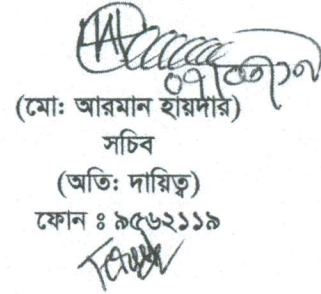 (মো: আরমান হায়দার)
সচিব
(অতি: দায়িত্ব)
ফোন ঃ ৯৫৬২১১৯